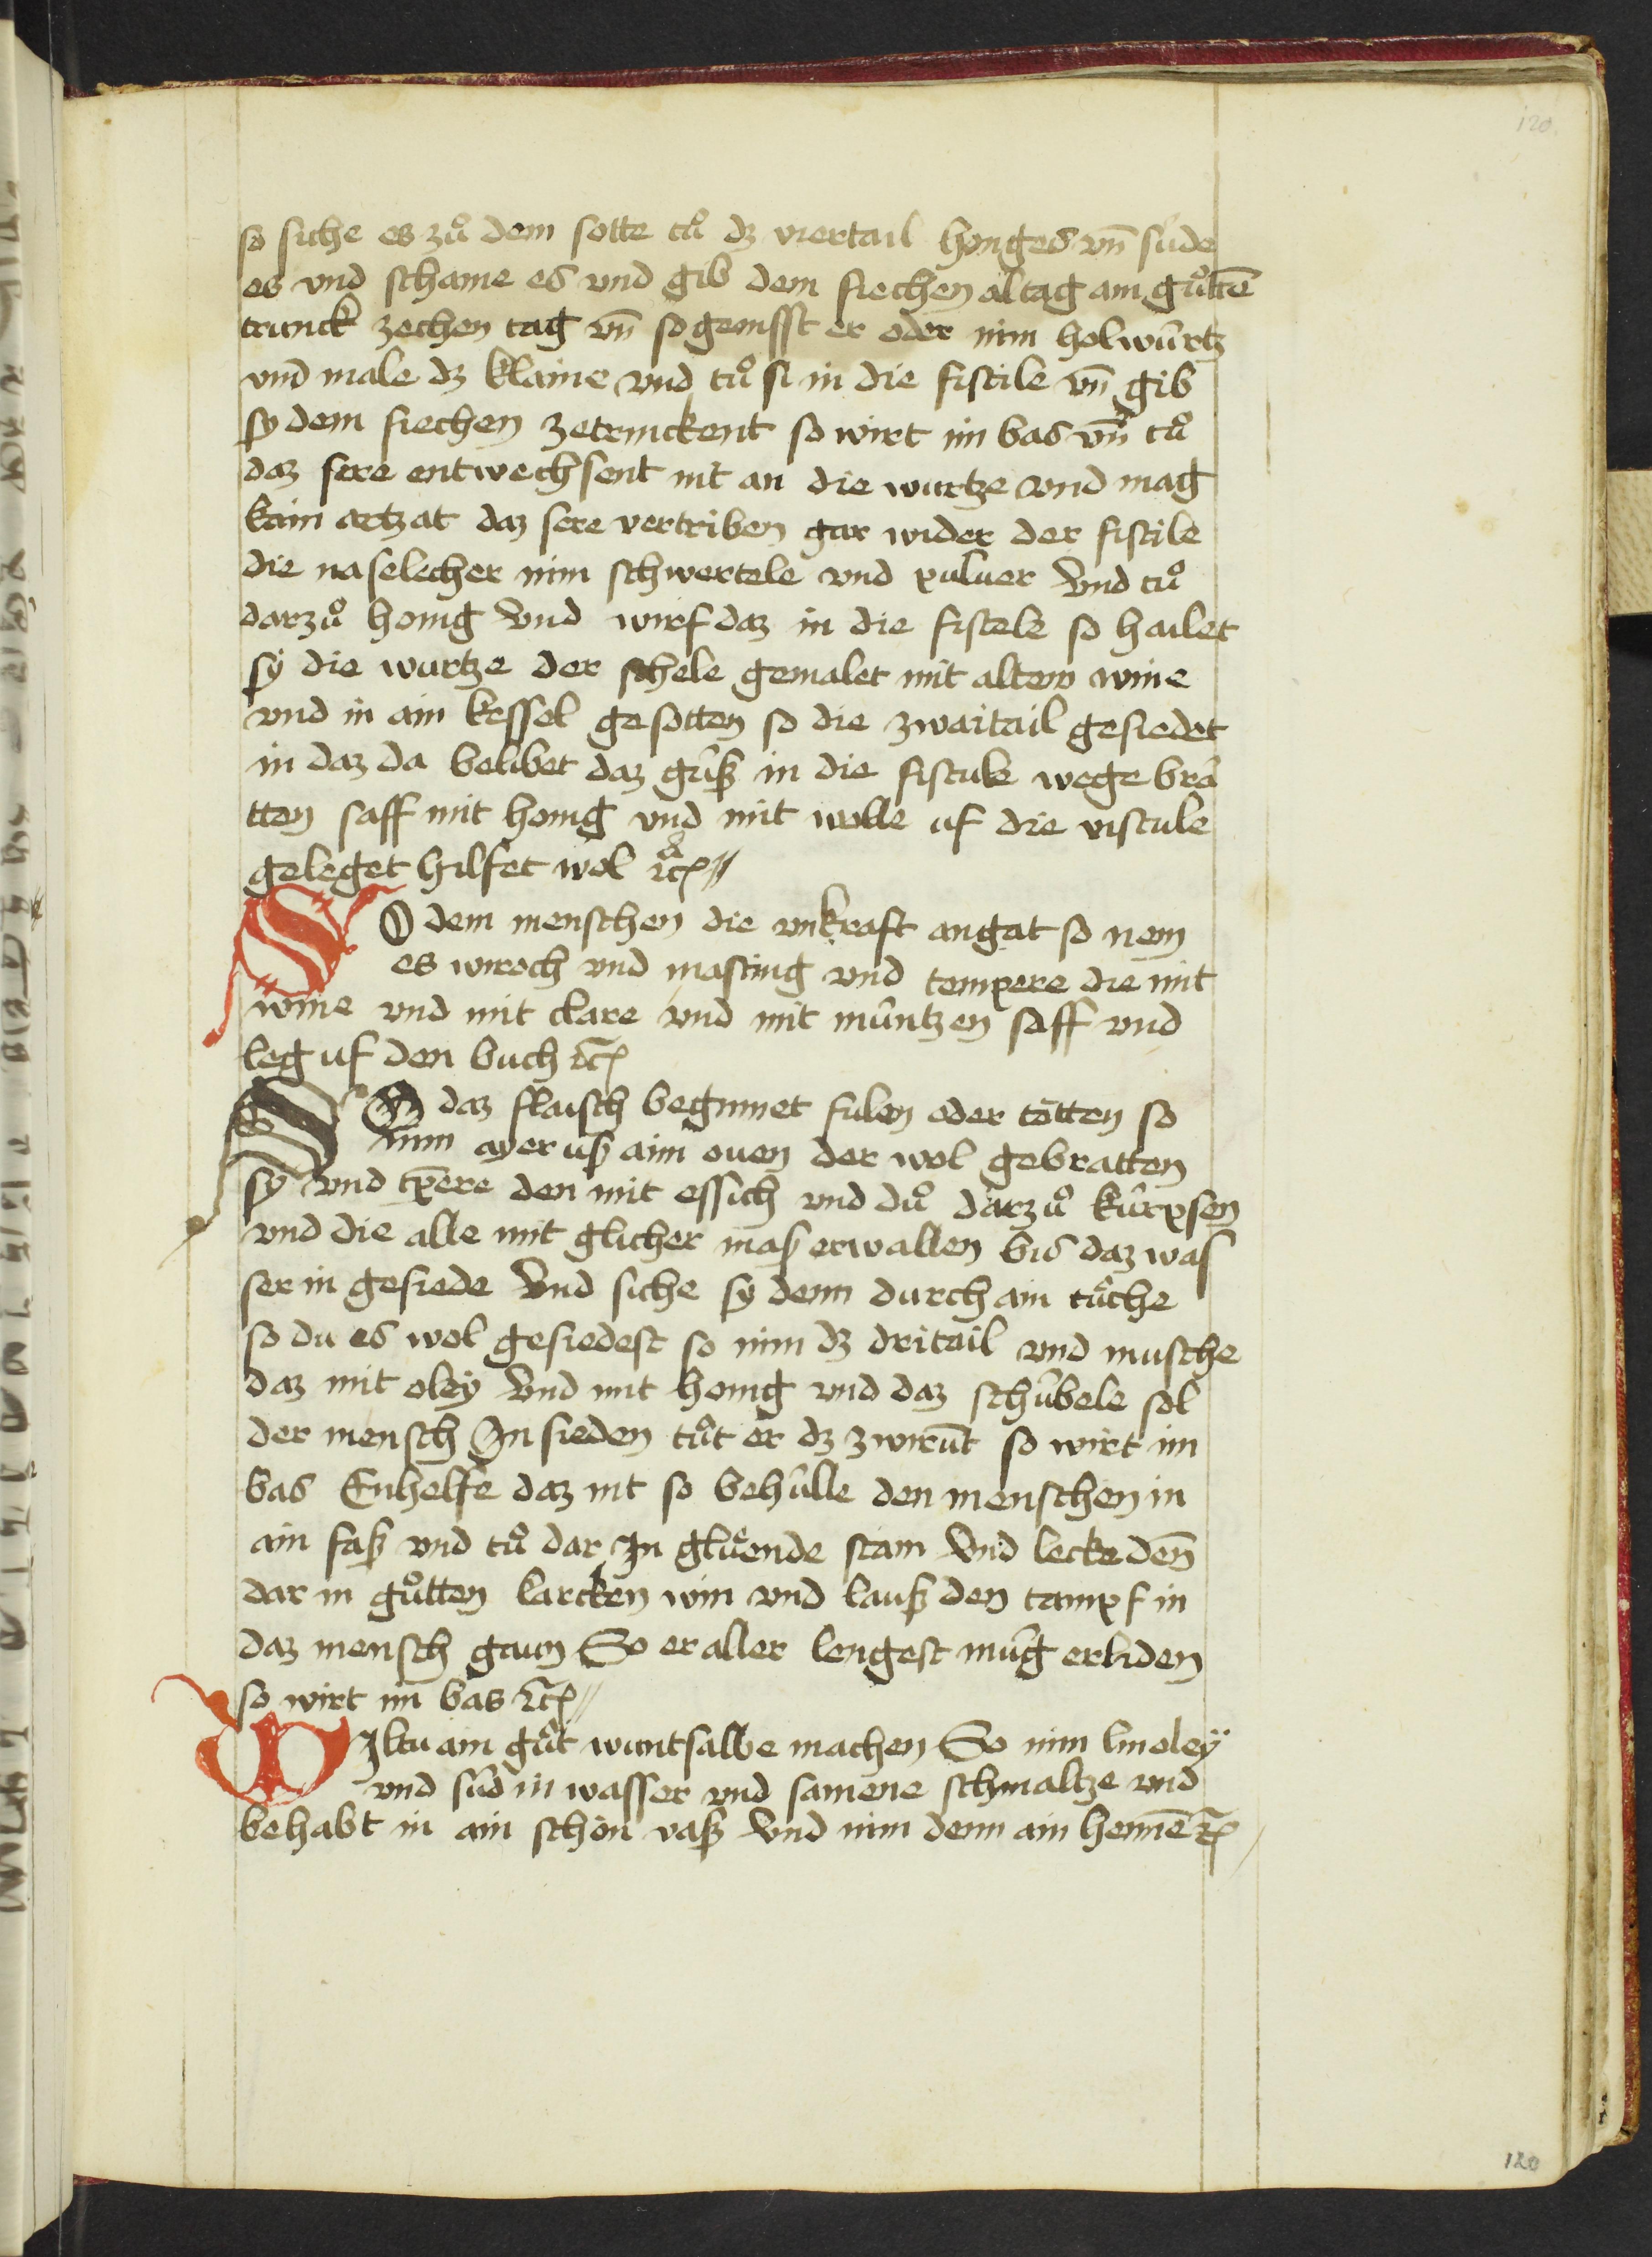 120.
so siche es zuͦ dem sotte tuͦ dz viertail honges vn̄ sude
es vnd schame es vnd gib dem siechen altag ain guͦttē
trunck zechen tag vn̄ so genisst er oder nim holwurtz
vnd male dz klaine vnd tuͦ si in die fistile vn̄ gib
sy dem siechen zetrinckent so wirt im bas vn̄ tuͦ
daz sere entwechsent nit an die wurtze vnd mag
kain artzat daz sere vertriben gar wider der fistile
die naselecher nim schwertele vnd puluer vnd tuͦ
darzuͦ honig vnd wirf daz in die fistele so hailet
sy die wurtze der schele gemalet mit altem wine
vnd in ain kessel gesotten so die zwaitail gesiedet
in daz da belibet daz guß in die fistule wege bra
tten saff mit honig vnd mit wolle uf die vistule
geleget hilfet wol ꝛc
SO dem menschen die vnkraft angat so nem
es wiroch vnd masting vnd tempere die mit
wine vnd mit clare vnd mit müntzen saff vnd
leg uf den buch ꝛc
SO daz flaisch beginnet fulen oder tötten so
nim ayer uß aim ouen der wol gebratten
sy vnd tp̄ere den mit essich vnd duͦ darzuͦ kürpsen
vnd die alle mit glicher maß erwallen bis daz was
ser in gesiede vnd siche sy denn durch ain tuͦche
so du es wol gesiedest so nim dz dritail vnd musche
daz mit oley vnd mit honig vnd daz schübele sol
der mensch In sieden tuͦt er dz zwirūt so wirt im
bas Enhelfe daz nit so behülle den menschen in
ain faß vnd tuͦ dar In gluͤende stain vnd lecke den̄
dar in guͦtten larcken win vnd lauß den tampf in
daz mensch gaun So er aller lengest mug erliden
so wirt im bas ꝛc
WIltu ain guͦt wuntsalbe machen So nim linoley
vnd süd in wasser vnd samene schmaltze vnd
behabt in ain schön vaß vnd nim denn ain hennē ꝛc
120